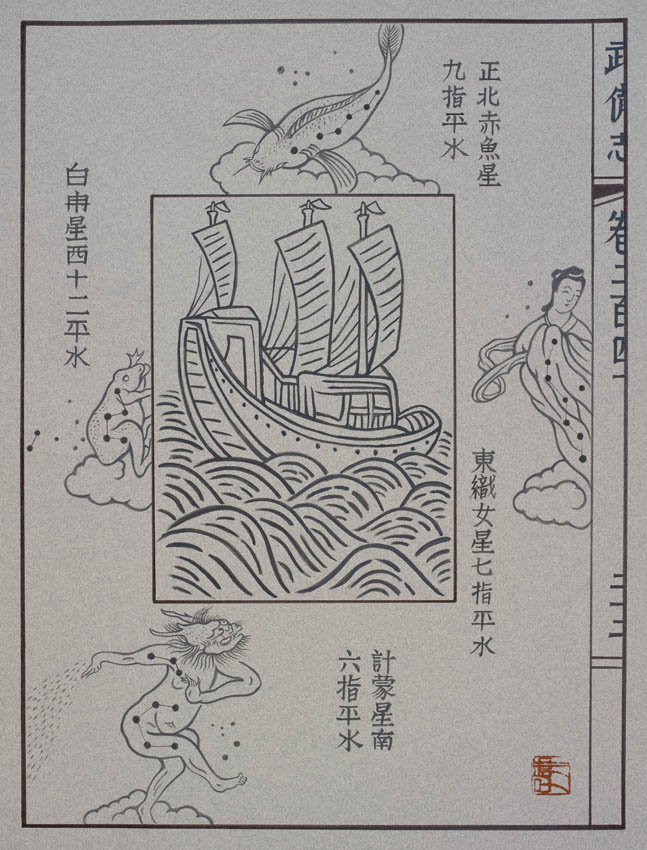 武備志
卷二百四十
正北赤魚星
九指平水
東織女星七指平水
計蒙星南
六指平水
白冉星西十二平水